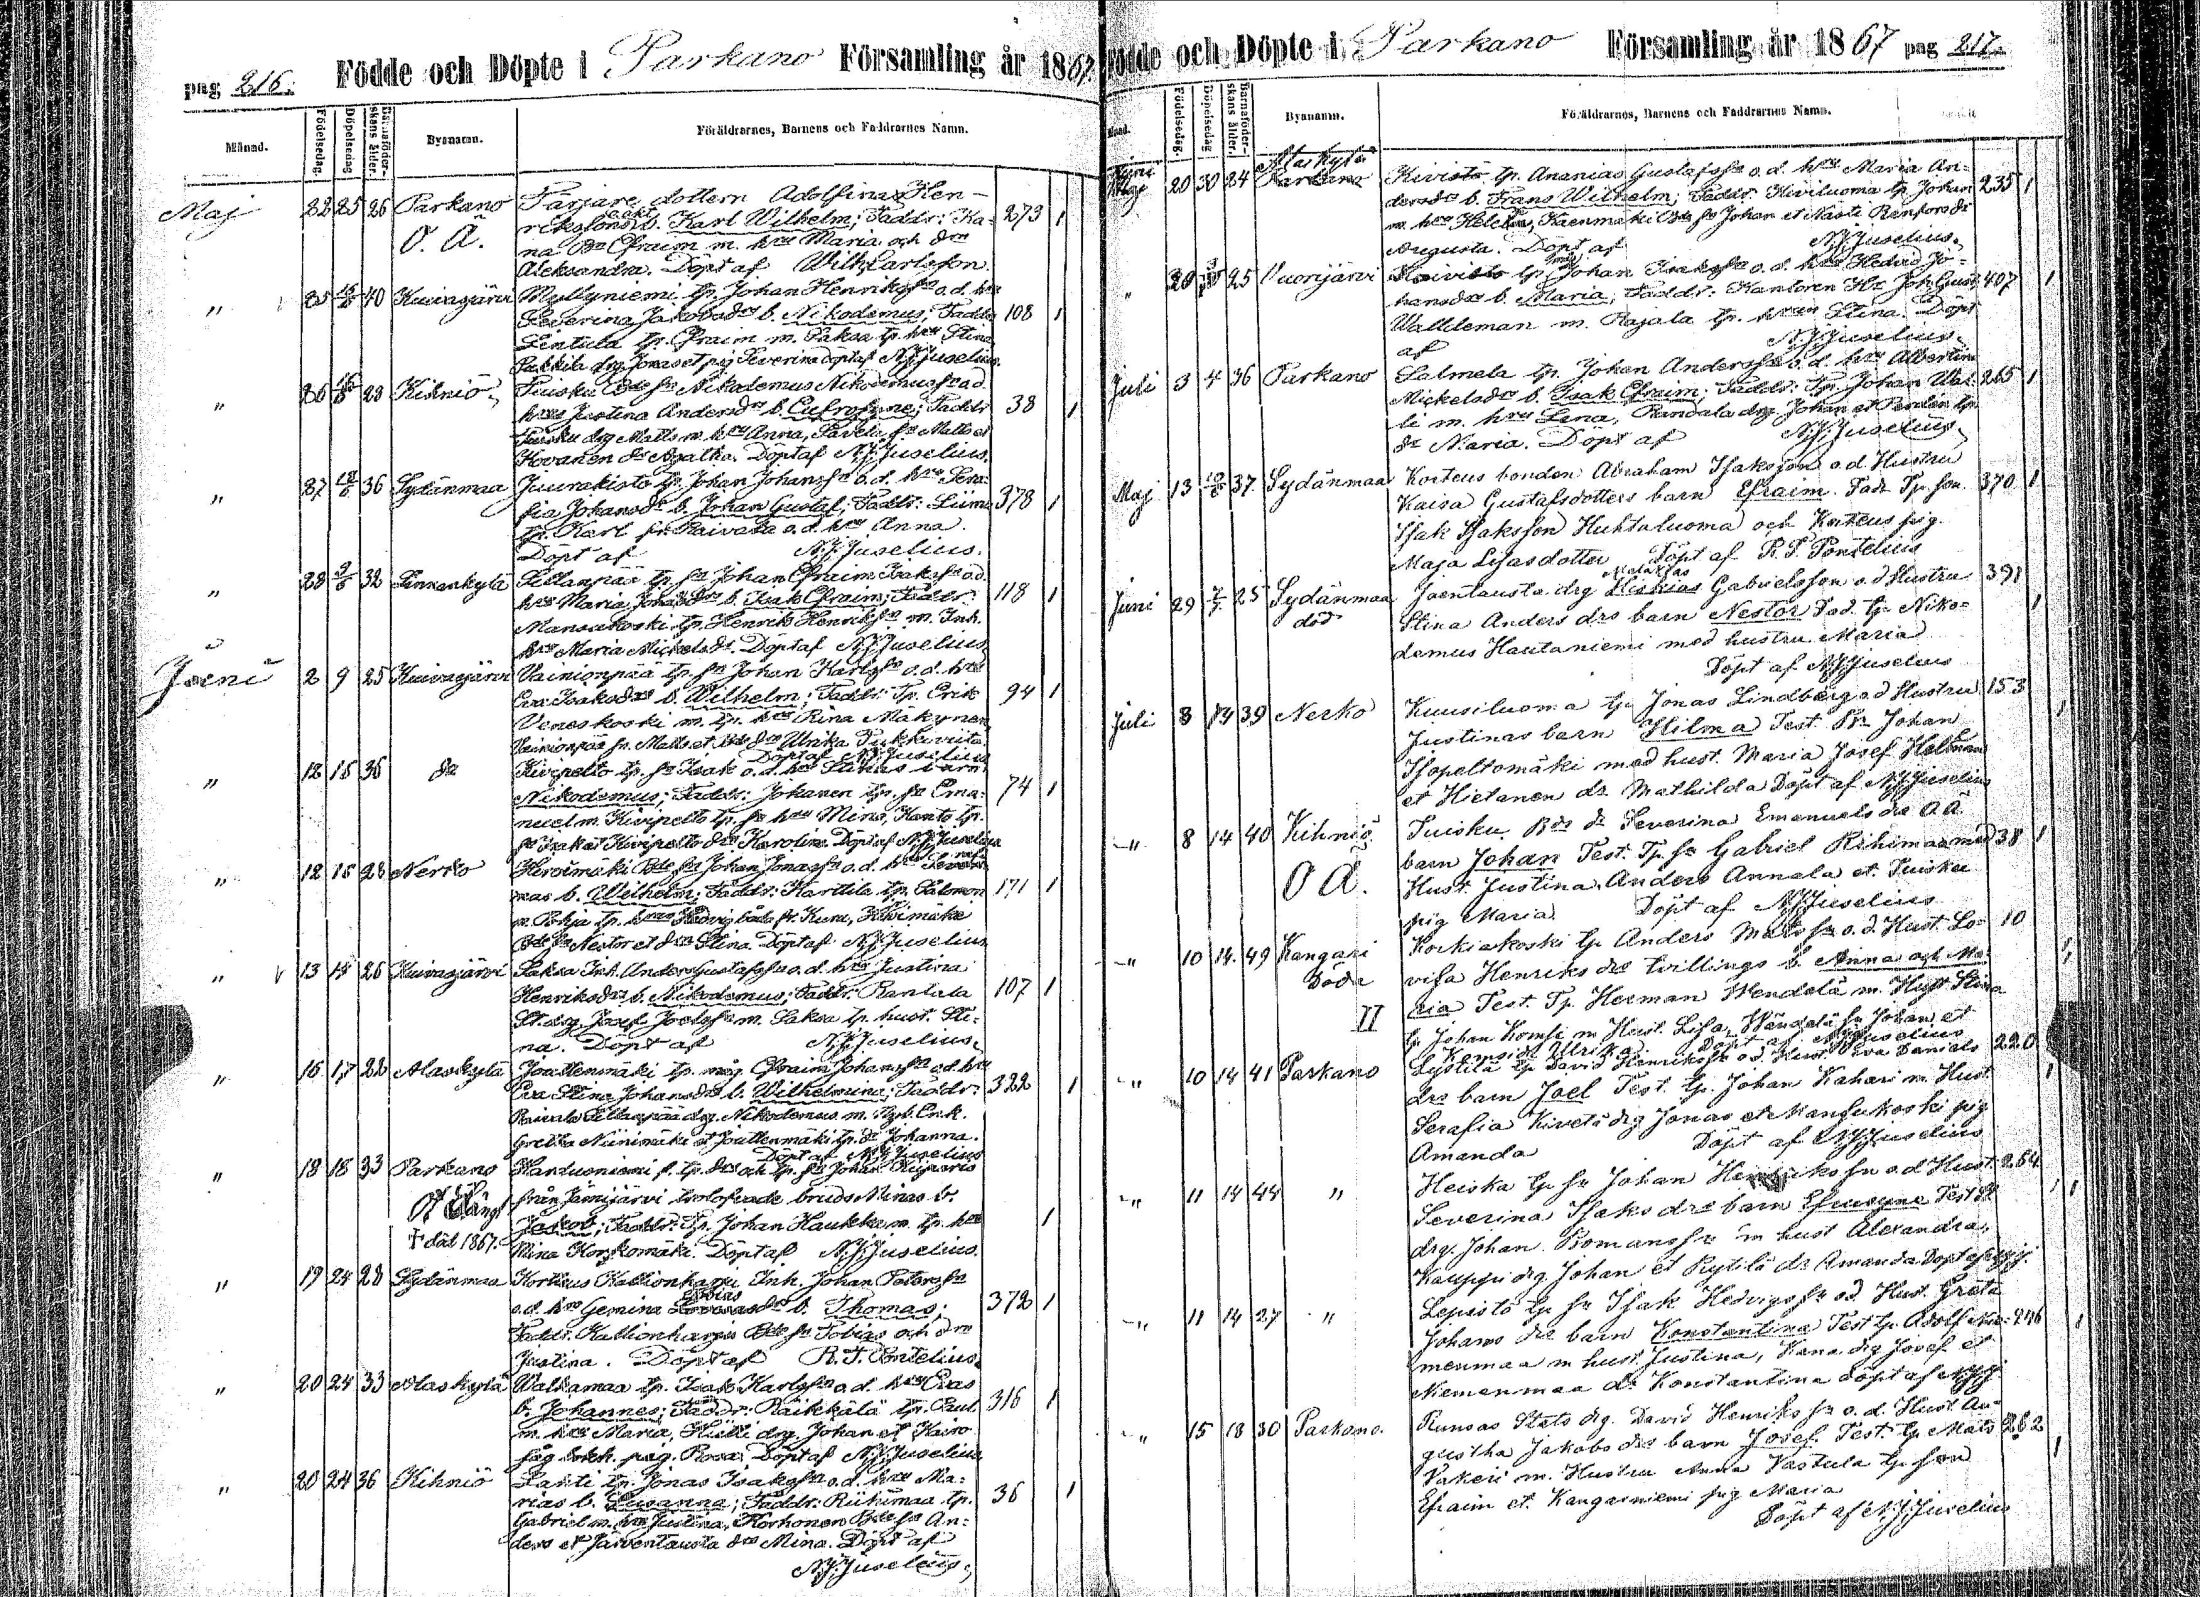 pag 216.
Födde och Döpte i Parkano Församling år 1867.
Månad.
Födelsedag.
Döpelsedag
Barnaföder-
skans ålder.
Byanamn.
Föräldrarnes, Barnens och Faddrarnes Namn.
Maj 22 25 26 Parkano Färjare dottern Adolfina Hen-
O. Ä. b. Karl Wilhelm; Faddr: Ka-
na Efraim m. hru Maria och drn
Aleksandra. Döpt af Wilh. Carlsson. 273 1
" 25 40 Kuivasjärvi Myllyniemi tp. Johan Henrikssn o.d. hru
Severina Jakobsdrs b. Nikodemus; Faddr 108 1
Lintula tp. Efraim m. Saksa tp. hru Stina
Pakkila drg Jonas et pig Severina Döpt af N.J. Juselius.
" 26 29 Kihniö Tuisku Bde sn Nikodemus Nikodemussn o.d.
hrus Justina Andersdrs b. Eufrosyne; Faddr 38 1
Tuisku drg Matts m. hru Anna, Savela sn Matts et
Kovanen dr Agatha. Döpt af N.J. Juselius.
" 27 36 Sydänmaa Juurakisto tp. Johan Johanssn o.d. hru Sera-
fia Johansdrs b. Johan Gustaf; Faddr: Liima 378 1
tp. Karl fr. Raivala o.d. hru Anna.
Döpt af N.J. Juselius.
" 28 32 Linnankylä Sillanpää tp. sn Johan Efraim Isakssn o.d.
hru Maria b. Isak Efraim; Faddr: 118 1
Mansikkoski tp. Henrik Henrikssn m. Inh.
hru Maria Mickelsdr. Döpt af N.J. Juselius
Juni 2 9 25 Kuivasjärvi Vainionpää tp. sn Johan Karlssn o.d. hru
Eva Isaksdrs b. Wilhelm; Faddr: Tp. Erik 94 1
Veneskoski m. tp. hru Rina Mäkynen
Vainionpää sn. Matts et Ulrika
Döpt af N.J. Juselius
" 12 15 35 do Kivipelto tp. sn Isak o.d. hru Stinas barn
Nikodemus; Faddr: Johanen tp. sn Ema- 74 1
nuel m. Kivipelto tp. sn hru Mina, Kanto tp.
sn Isak et Kivipelto drs Karolina Döpt af N.J. Juselius
" 12 15 28 Nerko Heroimäki Bde sn Johan Jonassn o.d. hru
b. Wilhelm; Faddr: Karttila tp. Salomon 171 1
m. Pohja tp. hru Hedvig båda fr. Kuru,
Bde sn Nestor et drn Stina. Döpt af N.J. Juselius
" 13 15 26 Kuivasjärvi Saksa Inh. Anders Gustafssn o.d. hru Justina
Henriksdrs b. Nikodemus; Faddr: Rantala 107 1
St. drg. Josef Joelssn m. Saksa tp. hust. Sti-
na. Döpt af N.J. Juselius.
" 16 17 22 Alaskylä Jouttenmäki tp. måg Efraim Johanssn o.d. hru
Eva Stina Johansdrs b. Wilhelmina; Faddr: 322 1
Raivala Sillanpää drg. Nikodemus m.
Gretha Niinimäki et Jouttenmäki tp. dr Johanna.
Döpt af N.J. Juselius
" 18 18 33 Parkano Harduoniemi f. tp. drs och tp. sn Johan
från Jämijärvi trolofvade bruds Minas b.
Jakob; Faddr: Tp. Johan Haukka m. tp. hru 1
† död 1867. Mina Korpomäki. Döpt af N.J. Juselius.
" 19 24 28 Sydänmaa Korteus Kallionharju Inh. Johan Peterssn
o.d. hru Gemina b. Thomas; 372 1
Faddr. Kallionharju Bde sn Tobias och drn
Justina. Döpt af R.T. Pontelius.
" 20 24 33 Alaskylä Walkamaa tp. Isak Karlssn o.d. hru Evas
b. Johannes; Faddr: Räikkälä tp. Paul 316 1
m. hru Maria, drg. Johan et
pig. Rosa. Döpt af N.J. Juselius
" 20 24 36 Kihniö Lahti tp. Jonas Isakssn o.d. hru Ma-
rias b. Susanna; Faddr: Riihimaa tp. 36 1
Gabriel m. hru Justina, Korhonen Bde sn An-
ders et Järventausta drs Mina. Döpt af
N.J. Juselius.
Födde och Döpte i Parkano Församling år 1867 pag 217.
Månad.
Födelsedag.
Döpelsedag
Barnaföder-
skans ålder.
Byanamn.
Föräldrarnes, Barnens och Faddrarnes Namn.
Alaskylä
Juni 20 30 24 Parkano Kivistö tp. Ananias Gustafssn o.d. hru Maria An-
dersdrs b. Frans Wilhelm; Faddr: Kiviluoma tp. Johan 235 1
m. hru Helena, Kaenmäki Bde sn Johan et Nästi Renfors dr
Augusta. Döpt af N.J. Juselius.
" 20 25 Vuorijärvi Koivisto tp. Johan Isakssn o.d. hru Hedvig Jo-
hansdrs b. Maria; Faddr: Kantoren Hr Joh. Gust. 407 1
Walldeman m. Rajala tp. hrun Stina. Döpt
af N.J. Juselius.
Juli 3 4 36 Parkano Salmela tp. Johan Anderssn o.d. hru Albertina
Mickelsdrs b. Isak Efraim; Faddr: Tp. Johan Wat- 265 1
li m. hru Lena, Randala drg Johan et Pendin tp.
dr Maria. Döpt af N.J. Juselius.
Maj 13 37 Sydänmaa Korteus bonden Abraham Isaksson o.d Hustru
Kaisa Gustafsdotters barn Efraim. Fadr Tp. son 370 1
Isak Isaksson Huhtaluoma och Korteus pig.
Maja Lisasdotter Döpt af R.T. Pontelius
Juni 29 25 Sydänmaa Joentausta drg Gabrielsson o.d Hustru 391
död Stina Anders drs barn Nestor Fad. tp. Niko- 1
demus Hautaniemi med hustru Maria
Döpt af N.J. Juselius
Juli 8 14 39 Nerko Kuusiluoma tp Jonas Lindberg o.d Hustru 153
Justinas barn Hilma Test Johan 1
Isopeltomäki med hust. Maria Josef Hallman
et Hietanen dr. Mathilda Döpt af N.J. Juselius
-" 8 14 40 Kihniö Tuisku Bds dr Severina Emanuels drs O.Ä
barn Johan Test. Tp. sn Gabriel Riihimaa med 38 1
O Ä. Hust. Justina, Anders Annala et Tuisku
pig Maria Döpt af N.J. Juselius
-" 10 14. 49 Kangari Korkiakoski tp Anders Mats sn o.d. Hust. Lo- 10
Döda visa Henriks drs tvillings b. Anna och Ma- 1
II ria Test. Tp. Herman Wendelä m. Hust. Stina 1
tp. Johan Komsi m Hust. Lisa, Wändelä sn Johan et
Komsi dr Ulrika Döpt af N.J. Juselius
-" 10 14 41 Parkano Lystilä tp David Henrikssn o.d. Hust Eva Daniels 220
drs barn Joel Test. tp. Johan Kahari m. Hust. 1
Serafia Kivelä drg Jonas et Mansikoski pig
Amanda Döpt af N.J. Juselius
-" 11 14 44 " Heiska tp sn Johan Henriks sn o.d Hust. 264
Severina Isaks drs barn Efrusyne Test 1
drg. Johan Romans sn m hust Alexandra,
Kauppi drg Johan et Rytilä dr Amanda Döpt af N.J.J.
-" 11 14 27 " Lepistö tp sn Isak Hedvigs sn o.d. Hust. Greta
Johans drs barn Konstantina Test tp. Adolf Nie- 246 1
menmaa m hust. Justina, Kana drg Josef et
Niemenmaa dr Konstantina döpt af N.J.J.
-" 15 18 30 Parkano. Runsas Stats drg. David Henriks sn o.d. Hust Au-
gustha Jakobs drs barn Josef. Test tp Mats 262
Vakeri m. Hustru Anna Vastula tp. son 1
Efraim et. Kangasniemi pig Maria
Döpt af N.J. Juselius